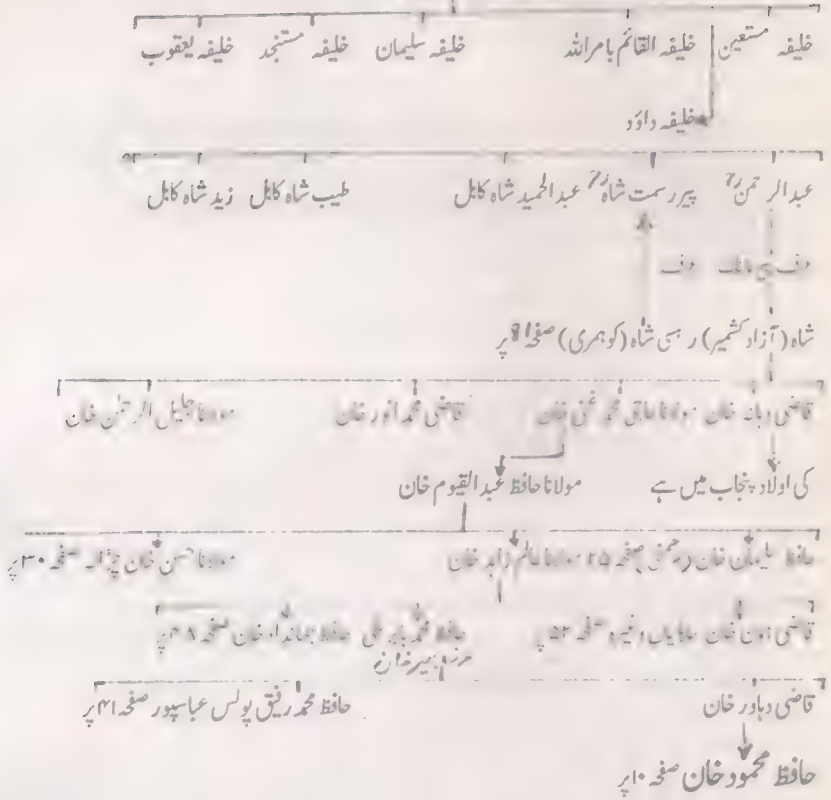 خلیفہ مستعین خلیفہ القائم بامراللہ خلیفہ سلیمان خلیفہ مستنجد خلیفہ یعقوب
خلیفہ داؤد
عبدالرحمن پیر رسمت شاہ عبدالحمید شاہ کابل طیب شاہ کابل زید شاہ کابل
شاہ (آزاد کشمیر) ر ہسی شاہ (کوہمری) صفحہ پر
قاضی دہانہ خان مولانا حاجی محمد غنی خان قاضی محمد انور خان مولانا جلیل الرحمٰن خان
کی اولاد پنجاب میں ہے مولانا حافظ عبدالقیوم خان
حافظ سلیمان خان صفحہ ۲۵ مولانا عالم زاہد خان مولانا حسن خان صفحہ ۳۰ پر
قاضی زون خان وغیرہ صفحہ ۵۲ حافظ محمد بابر علی حافظ جہانداد خان صفحہ ۴۸ پر
قاضی دہاور خان حافظ محمد رفیق پولس عباسپور صفحہ ۴۱ پر
حافظ محمود خان صفحہ ۱۰ پر